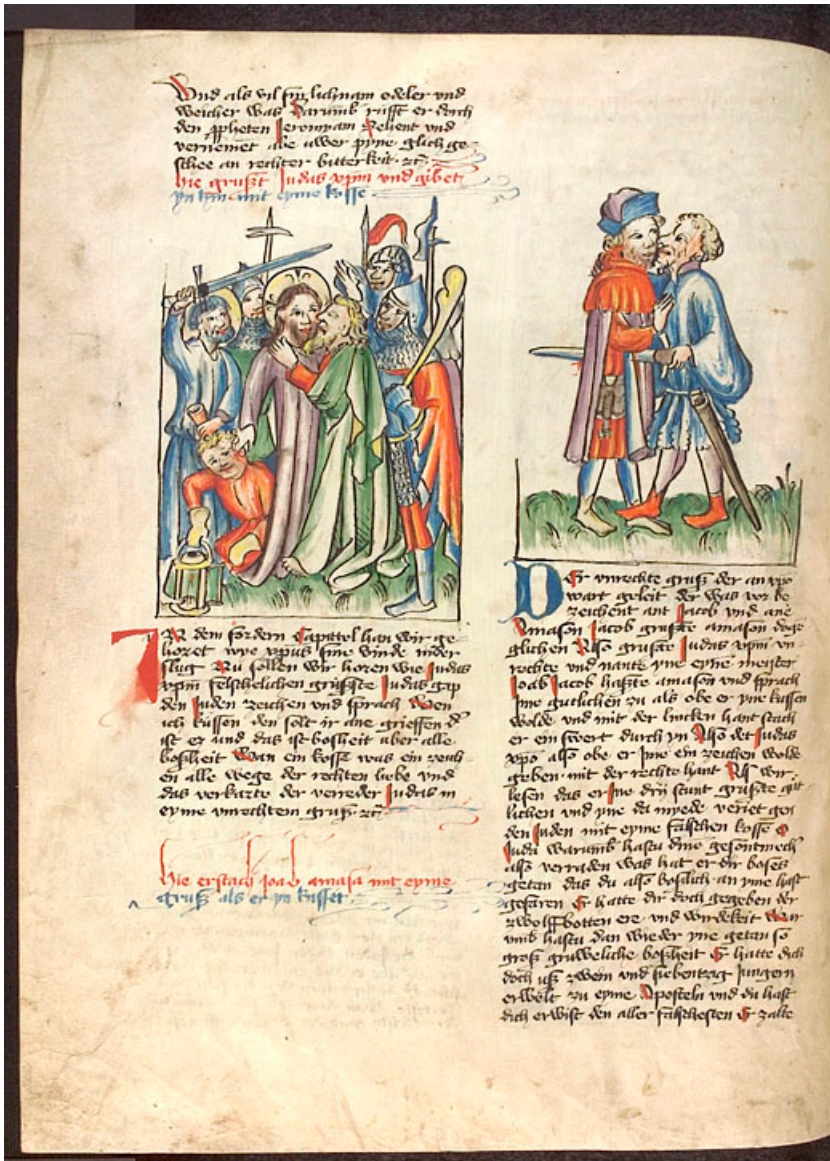 Vnd als vil sin lichnam edeler vnd
weicher was Darumb rufft er dorch
den ppheten Jeremyam Sehent vnd
vernemet abe uwer pyne glich ge-
schee an rechter bitterkeit · zc ·
hie grußt Judas xpm vnd gibet
yn hyn mit eyme kosse ·
IN dem fordern Capittel han wir ge-
horet wye xpus sine vinde nider
slug Nu sollen wir horen wie Judas
xpm felschelichen grußte Judas gap
den Juden zeichen vnd sprach Wen
ich kussen den solt ir ane grieffen d'
ist er vnd das ist bosheit aber alle
boßheit Wan ein kosse was ein zeich-
en alle wege der rechten liebe vnd
das verkarte der verreder Judas in
eyme vnrechtem gruß · zc ·
Hie erstach Joab amasa mit eyme
gruß als er yn kusset ·
DEr vnrechte gruß der an xpo
wart geleit der was vor be
zeichent ant Jacob vnd ane
Amason Jacob gruste amason
glichen Also gruste Judas xpm vn-
rechte vnd nante yne eyne meister
Joab Jacob haßte amason vnd sprach
Jme gutlichen zu als obe er yne kussen
wolde vnd mit der lincken hant stach
er ein swert durch yn Also det Judas
xpo also obe er Jme ein zeichen wolde
geben mit der rechte hant Als wir
lesen das er Jne stunt grußte gut
lichen vnd yne da myede veriet gen
den Juden mit eyme falschen kosse O
Juda warumb hastu dine
also verraden was hat er dir boses
getan das du also boslich an yme hast
gefaren Er hatte dir doch gegeben der
zwolffbotten ere vnd wirdekeit War
vmb hastu dan wieder yne getan so
groß gruweliche boßheit Er hatte dich
doch uß zwein vnd siebentzig Jungern
erwelt zu eyme Aposteln vnd du hast
dich erwist den aller falschesten Er zalte